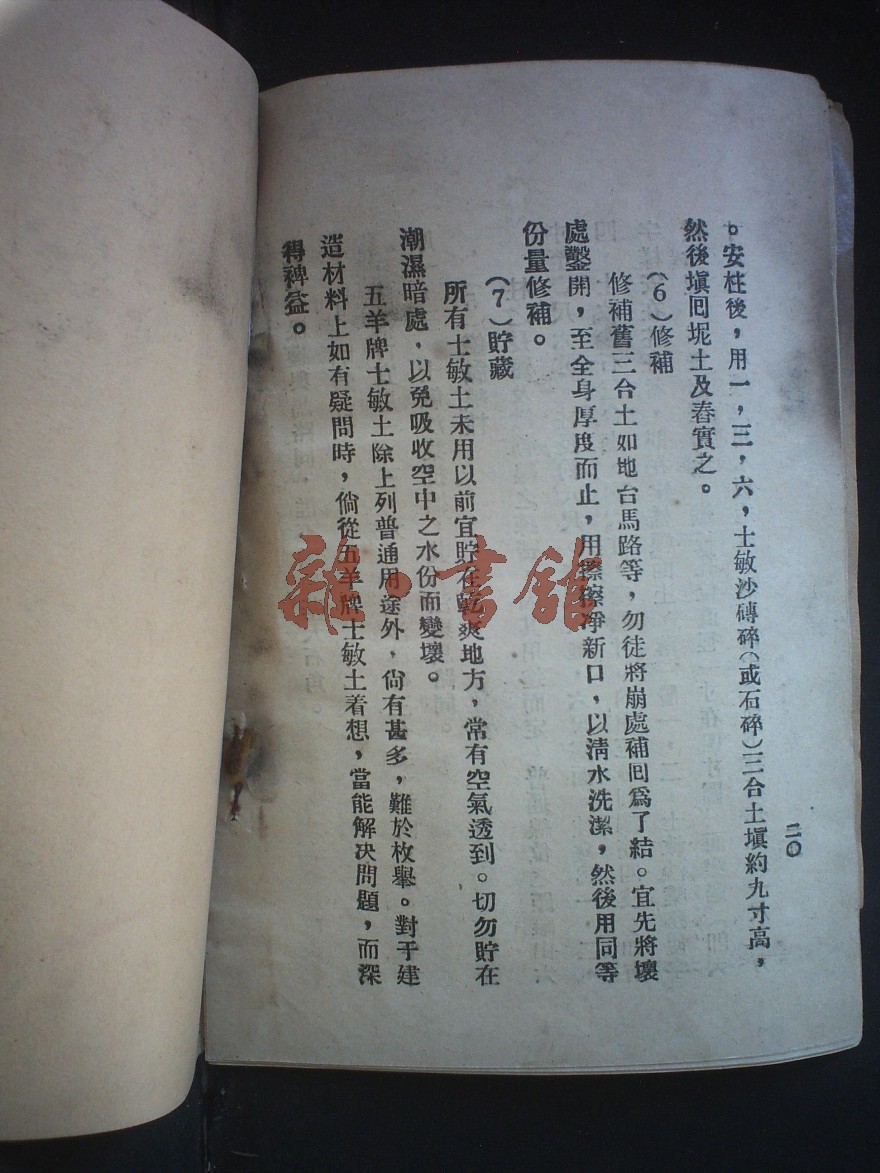 二〇
。安柱後，用一，三，六，士敏沙磚碎（或石碎）三合土填約九寸高，
然後填囘坭土及舂實之。
（6）修補
修補舊三合土如地台馬路等，勿徒將崩處補囘爲了結。宜先將壞
處鑿開，至全身厚度而止，用擦擦净新口，以清水洗潔，然後用同等
份量修補。
（7）貯藏
所有士敏土未用以前宜貯在乾爽地方，常有空氣透到。切勿貯在
潮濕暗處，以免吸收空中之水份而變壞。
五羊牌士敏土除上列普通用途外，尙有甚多，難於枚舉。對于建
造材料上如有疑問時，倘從五羊牌士敏土着想，當能解决問題，而深
得裨益。
雜·書館